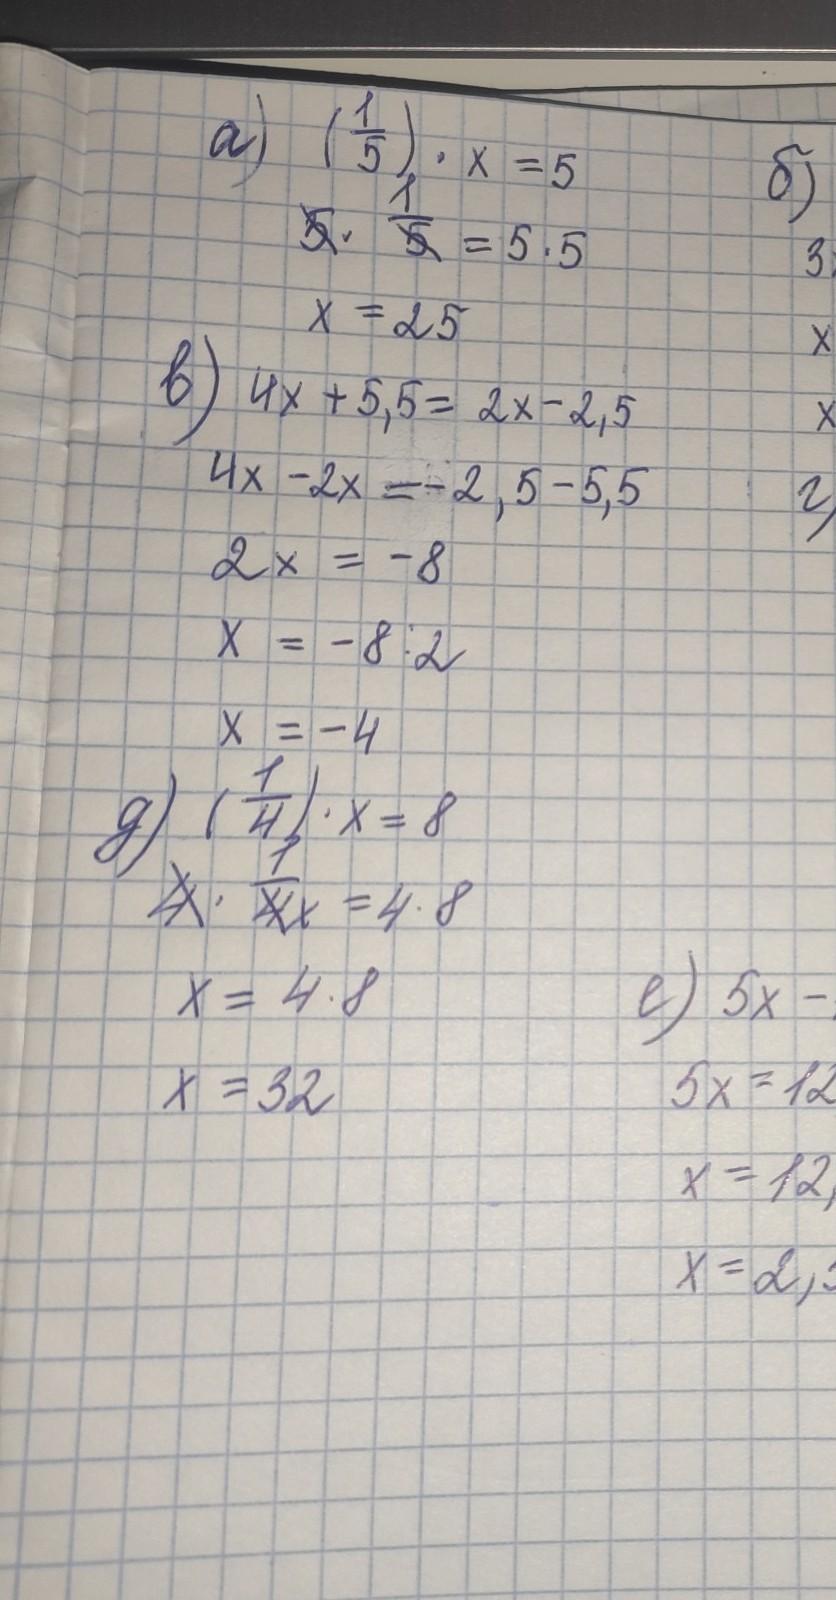 а) (1/5) · x = 5
5 · 1/5 = 5 · 5
x = 25
в) 4x + 5,5 = 2x - 2,5
4x - 2x = -2,5 - 5,5
2x = -8
x = -8 : 2
x = -4
д) (1/4) · x = 8
4 · 1/4 x = 4 · 8
x = 4 · 8
x = 32
б)
3
x
x
г)
е) 5x -
5x = 12
x = 12,
x = 2,